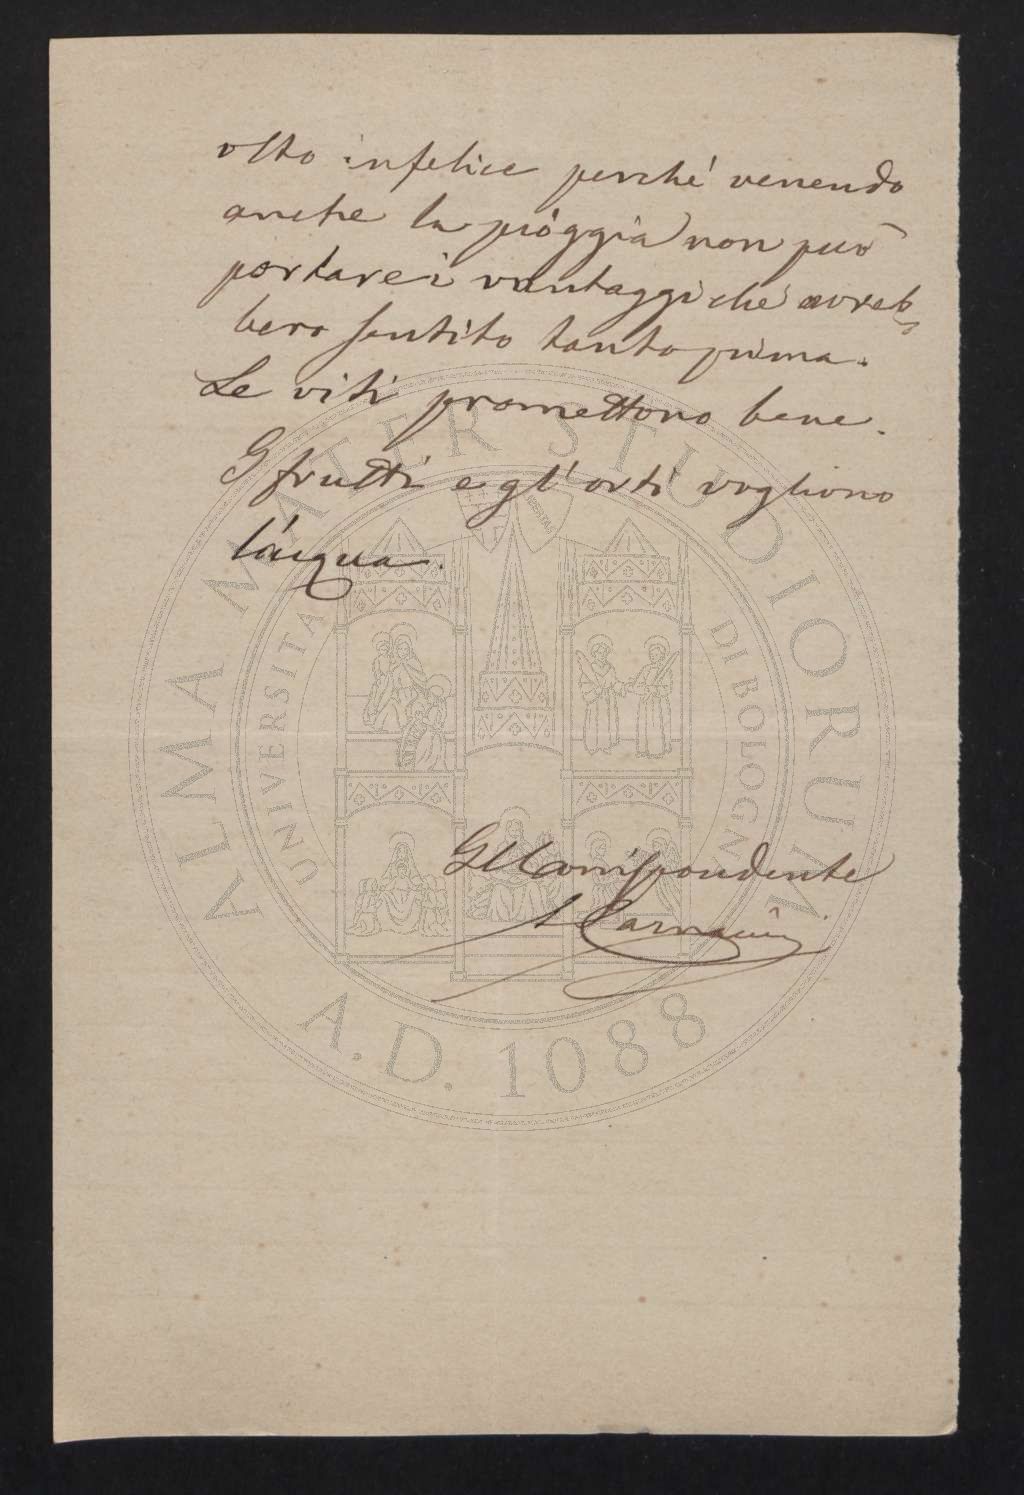 olto infelice perché venendo
anche la pioggia non può
portare i vantaggi che avreb
bero sentito tanto prima.
Le viti promettono bene.
I frutti e gl'orti vogliono
l'acqua.
Il Corrispondente
ALMA MATER STUDIORUM
UNIVERSITA DI BOLOGNA
A.D. 1088